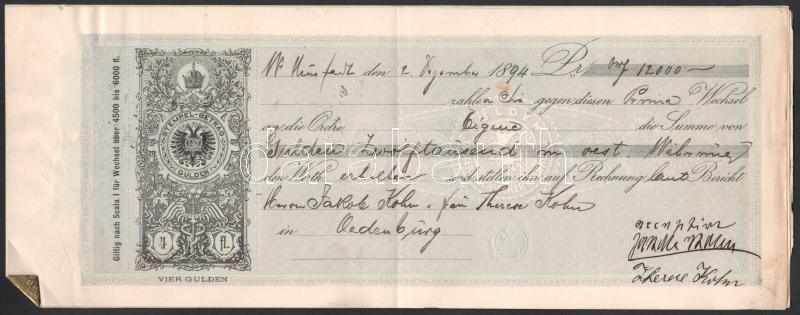 Giltig nach Scala I für Wechsel über 4500 bis 6000 fl.
STEMPEL-BETRAG
GULDEN
4 fl.
VIER GULDEN
Wr Neustadt den 2. Dezember 1894 Pr 12000
zahlen Sie gegen diesen Prima Wechsel
an die Ordre Eigene die Summe von
Gulden Zwölftausend in oest. Währung
den Werth erhalten und stellen ihn auf Rechnung laut Bericht
Herrn Jakob Kohn Frau Therese Kohn
in Oedenburg
Jakob Kohn
Therese Kohn
darabanth